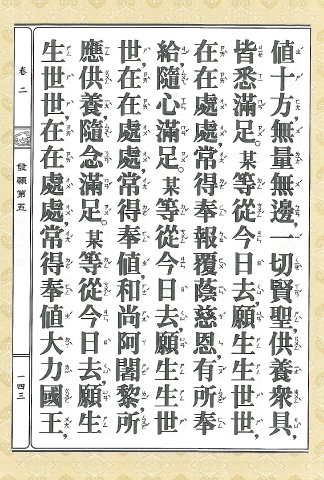 值十方，無量無邊，一切賢聖，供養眾具，
皆悉滿足。某等從今日去，願生生世世，
在在處處，常得奉報覆蔭慈恩，有所奉
給，隨心滿足。某等從今日去，願生生世
世，在在處處，常得奉值和尚阿闍黎，所
應供養，隨念滿足。某等從今日去，願生
生世世，在在處處，常得奉值大力國王，
卷二
發願第五
一四三